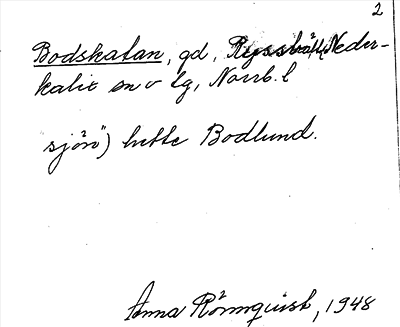 2
Bodskatan, gd, Neder-
kalix sn o lg, Norrb. l
sjön) hette Bodlund.
Anna Rönnquist, 1948